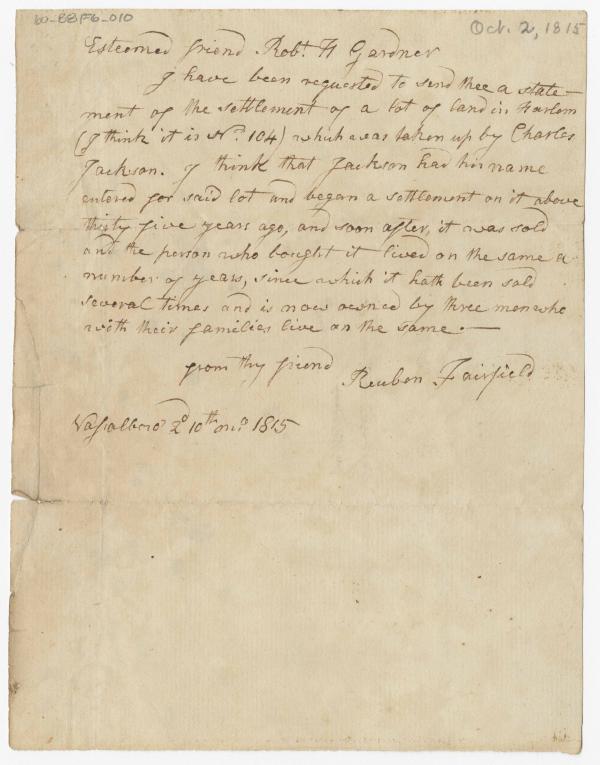 60-BBF6-010
Oct. 2, 1815
Esteemed friend Robt. H Gardner
I have been requested to send thee a state-
ment of the settlement of a lot of land in Harlem
(I think it is No. 104) which was taken up by Charles
Jackson. I think that Jackson had his name
entered for said lot and began a settlement on it above
thirty five years ago, and soon after, it was sold
and the person who bought it lived on the same a
number of years, since which it hath been sold
several times and is now owned by three men who
with their families live on the same.—
from thy friend
Reuben Fairfield
Vassalboro 2d 10th mo. 1815